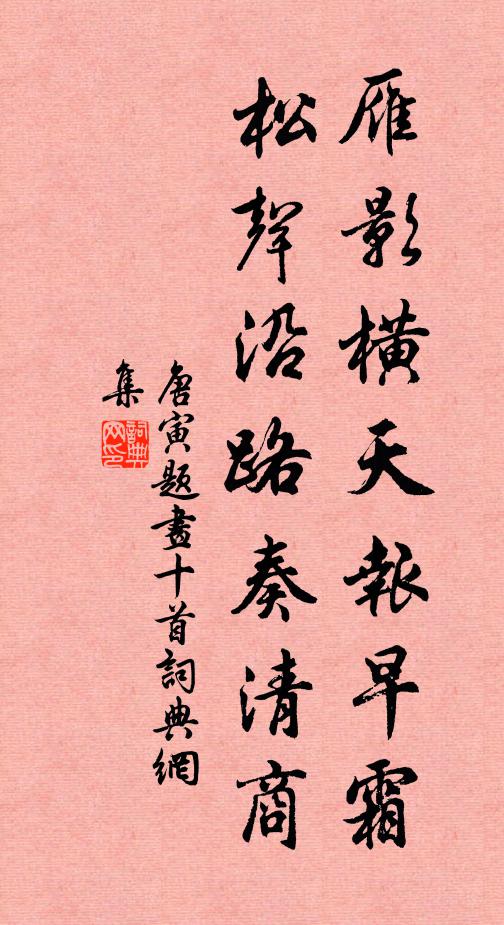 雁影橫天報早霜
松聲沿路奏清商
唐寅題畫十首詞典網
集
詞典
网印